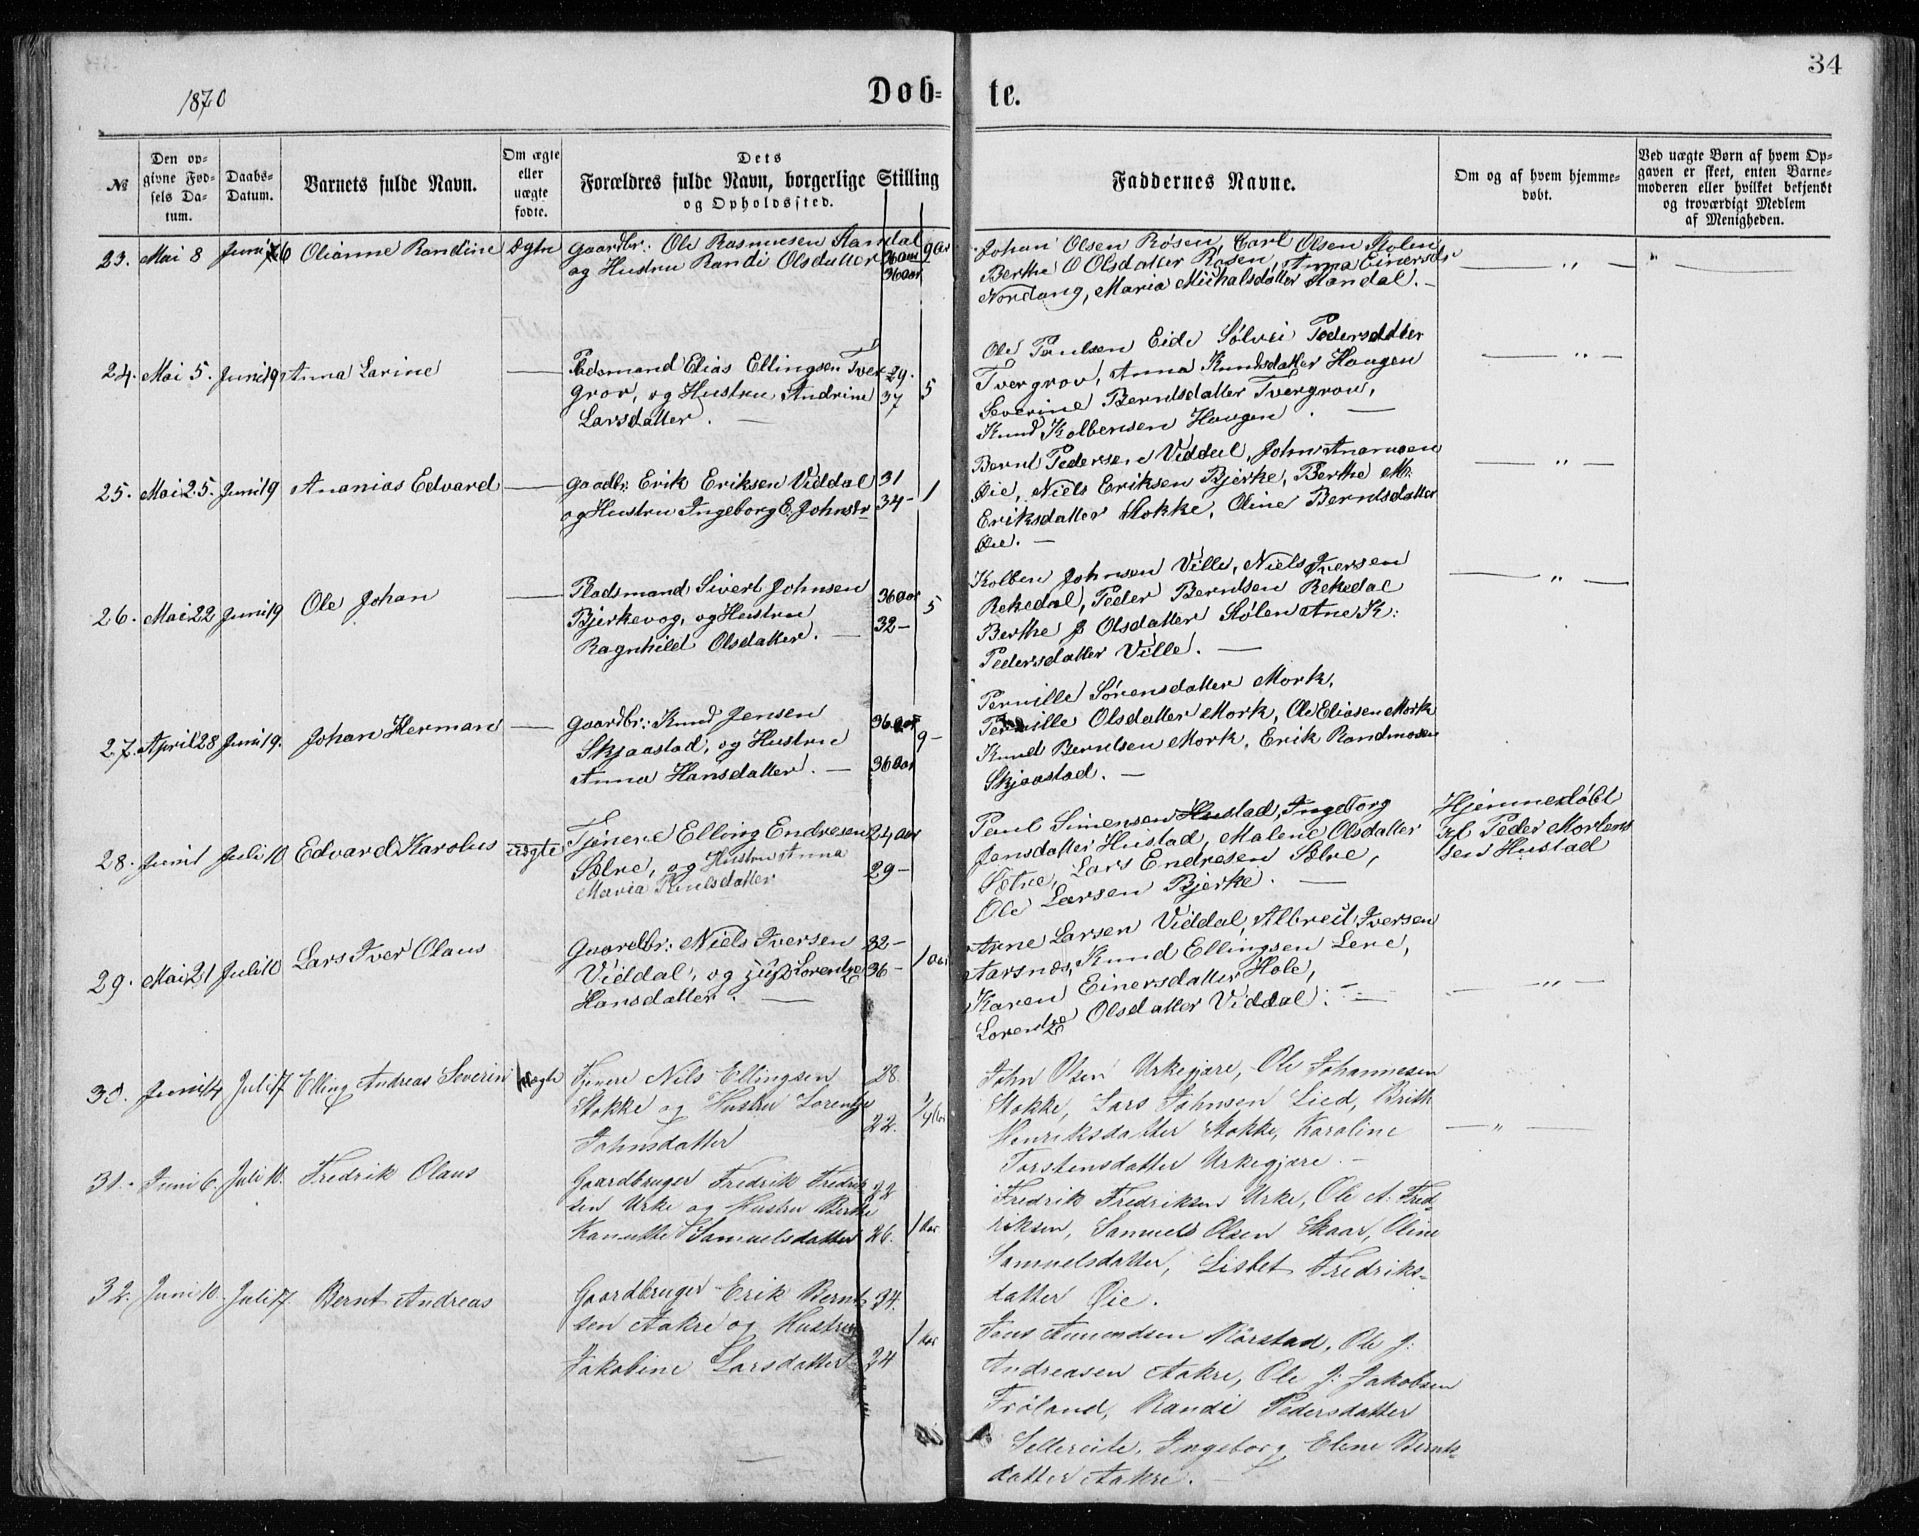 34
1870
Døb-te.
№
Den op-
givne Fød-
sels Da-
tum.
Daabs-
Datum.
Barnets fulde Navn.
Om ægte
eller
uægte
fødte.
Dets
Forældres fulde Navn, borgerlige Stilling
og Opholdssted.
Faddernes Navne.
Om og af hvem hjemme-
døbt.
Ved uægte Børn af hvem Op-
gaven er skeet, enten Barne-
moderen eller hvilket bekjendt
og troværdigt Medlem
af Menigheden.
23. Mai 8 Juni 6 Olianne Randine Ægte
Gaardbr: Ole Rasmusen Standal
og Hustru Randi Olsdatter
36 aar
36 aar
9 aar
Johan Olsen Røsen, Carl Olsen Stolen
Berthe O Olsdatter Rosen, Anna Einersdr
Nordang, Maria Michalsdatter Standal. —
— " —
" —
24. Mai 5. Juni 19 Anna Larine —
Pladsmand Elias Ellingsen Tver
grov, og Hustru Andrine
Larsdatter. —
29.
37
5
Ole Paulsen Eide Sølvei Pedersdatter
Tvergrov, Anna Knudsdatter Haugen
Severine Berntsdatter Tvergrov,
Knud Kolbensen Haugen. —
— " —
25. Mai 25. Juni 19 Ananias Edvard —
Gaadbr: Erik Eriksen Viddal
og Hustru Ingeborg E. Johnsdr
31
34 —
1
Bernt Pedersen Viddal, John Ananiasen
Øie, Niels Eriksen Bjerke, Berthe M:
Eriksdatter Stokke, Oline Berntsdatter
Øie. —
— " —
26. Mai 22 Juni 19 Ole Johan —
Pladsmand Sivert Johnsen
Bjerkevog, og Hustru
Ragnhild Olsdatter. —
36 aar
32 —
5
Kolben Johnsen Ville, Niels Iversen
Rekedal, Peder Berntsen Rekedal
Berthe J Olsdatter Stølen Ane K:
Pedersdatter Ville. —
— " —
27. April 28 Juni 19. Johan Herman —
Gaardbr: Knud Jensen
Skjaastad, og Hustru
Anna Hansdatter. —
36 aar
36 aar
9 —
Pernille Sørensdatter Mork,
Pernille Olsdatter Mork, Ole Eliasen Mork
Knud Berntsen Mork, Erik Randmosen
Skjaastad. —
28. Juni 1 Juli 10 Edvard Karolus uægte
Tjenere Elling Endresen
Sætre, og Hustru Anna
Maria Paulsdatter
24 aar
29 —
Paul Simensen Hustad, Ingeborg
Jensdatter Hustad, Malene Olsdatter
Sætre, Lars Endresen Sætre,
Ole Larsen Bjerke. —
Hjemmedøbt
af Peder Mortens
sen Hustad
29. Mai 21 Juli 10 Lars Iver Olaus
Gaardbr: Niels Iversen
Viddal, og Lorentze
Hansdatter. —
32 —
36 —
1 aar
Arne Larsen Viddal, Albreit Iversen
Aarsnes, Knud Ellingsen Lene,
Karen Einersdatter Hole,
Lorentze Olsdatter Viddal. —
— " —
30. Juni 4 Juli 17 Elling Andreas Severin Uægte
Tjenere Nils Ellingsen
Stokke og Hustru Lorentze
Johnsdatter
28.
22.
John Olsen Urkegjære, Ole Johannesen
Stokke, Lars Johnsen Lied, Brith
Henriksdatter Stokke, Karoline
Torstensdatter Urkegjære. —
— " —
31. Juni 6. Juli 10. Fredrik Olaus
Gaardbruger Fredrik Fredrik
sen Urke og Hustru Berthe
Kanutte Samuelsdatter
22
26.
1 aar
Fredrik Fredriksen Urke, Ole A: Fred-
riksen, Samuel Olsen Skaar, Oline
Samuelsdatter, Lisbet Fredriks-
datter Øie.
32. Juni 10 Juli 17 Bernt Andreas
Gaardbruger Erik Bernt
sen Aakre og Hustru
Jakobine Larsdatter
34.
24
1 aar
Jens Amundsen Rørstad, Ole J:
Andreasen Aakre, Ole J: Jakobsen
Frøland, Randi Pedersdatter
Sellereite, Ingeborg Elene Bernts-
datter Aakre. —